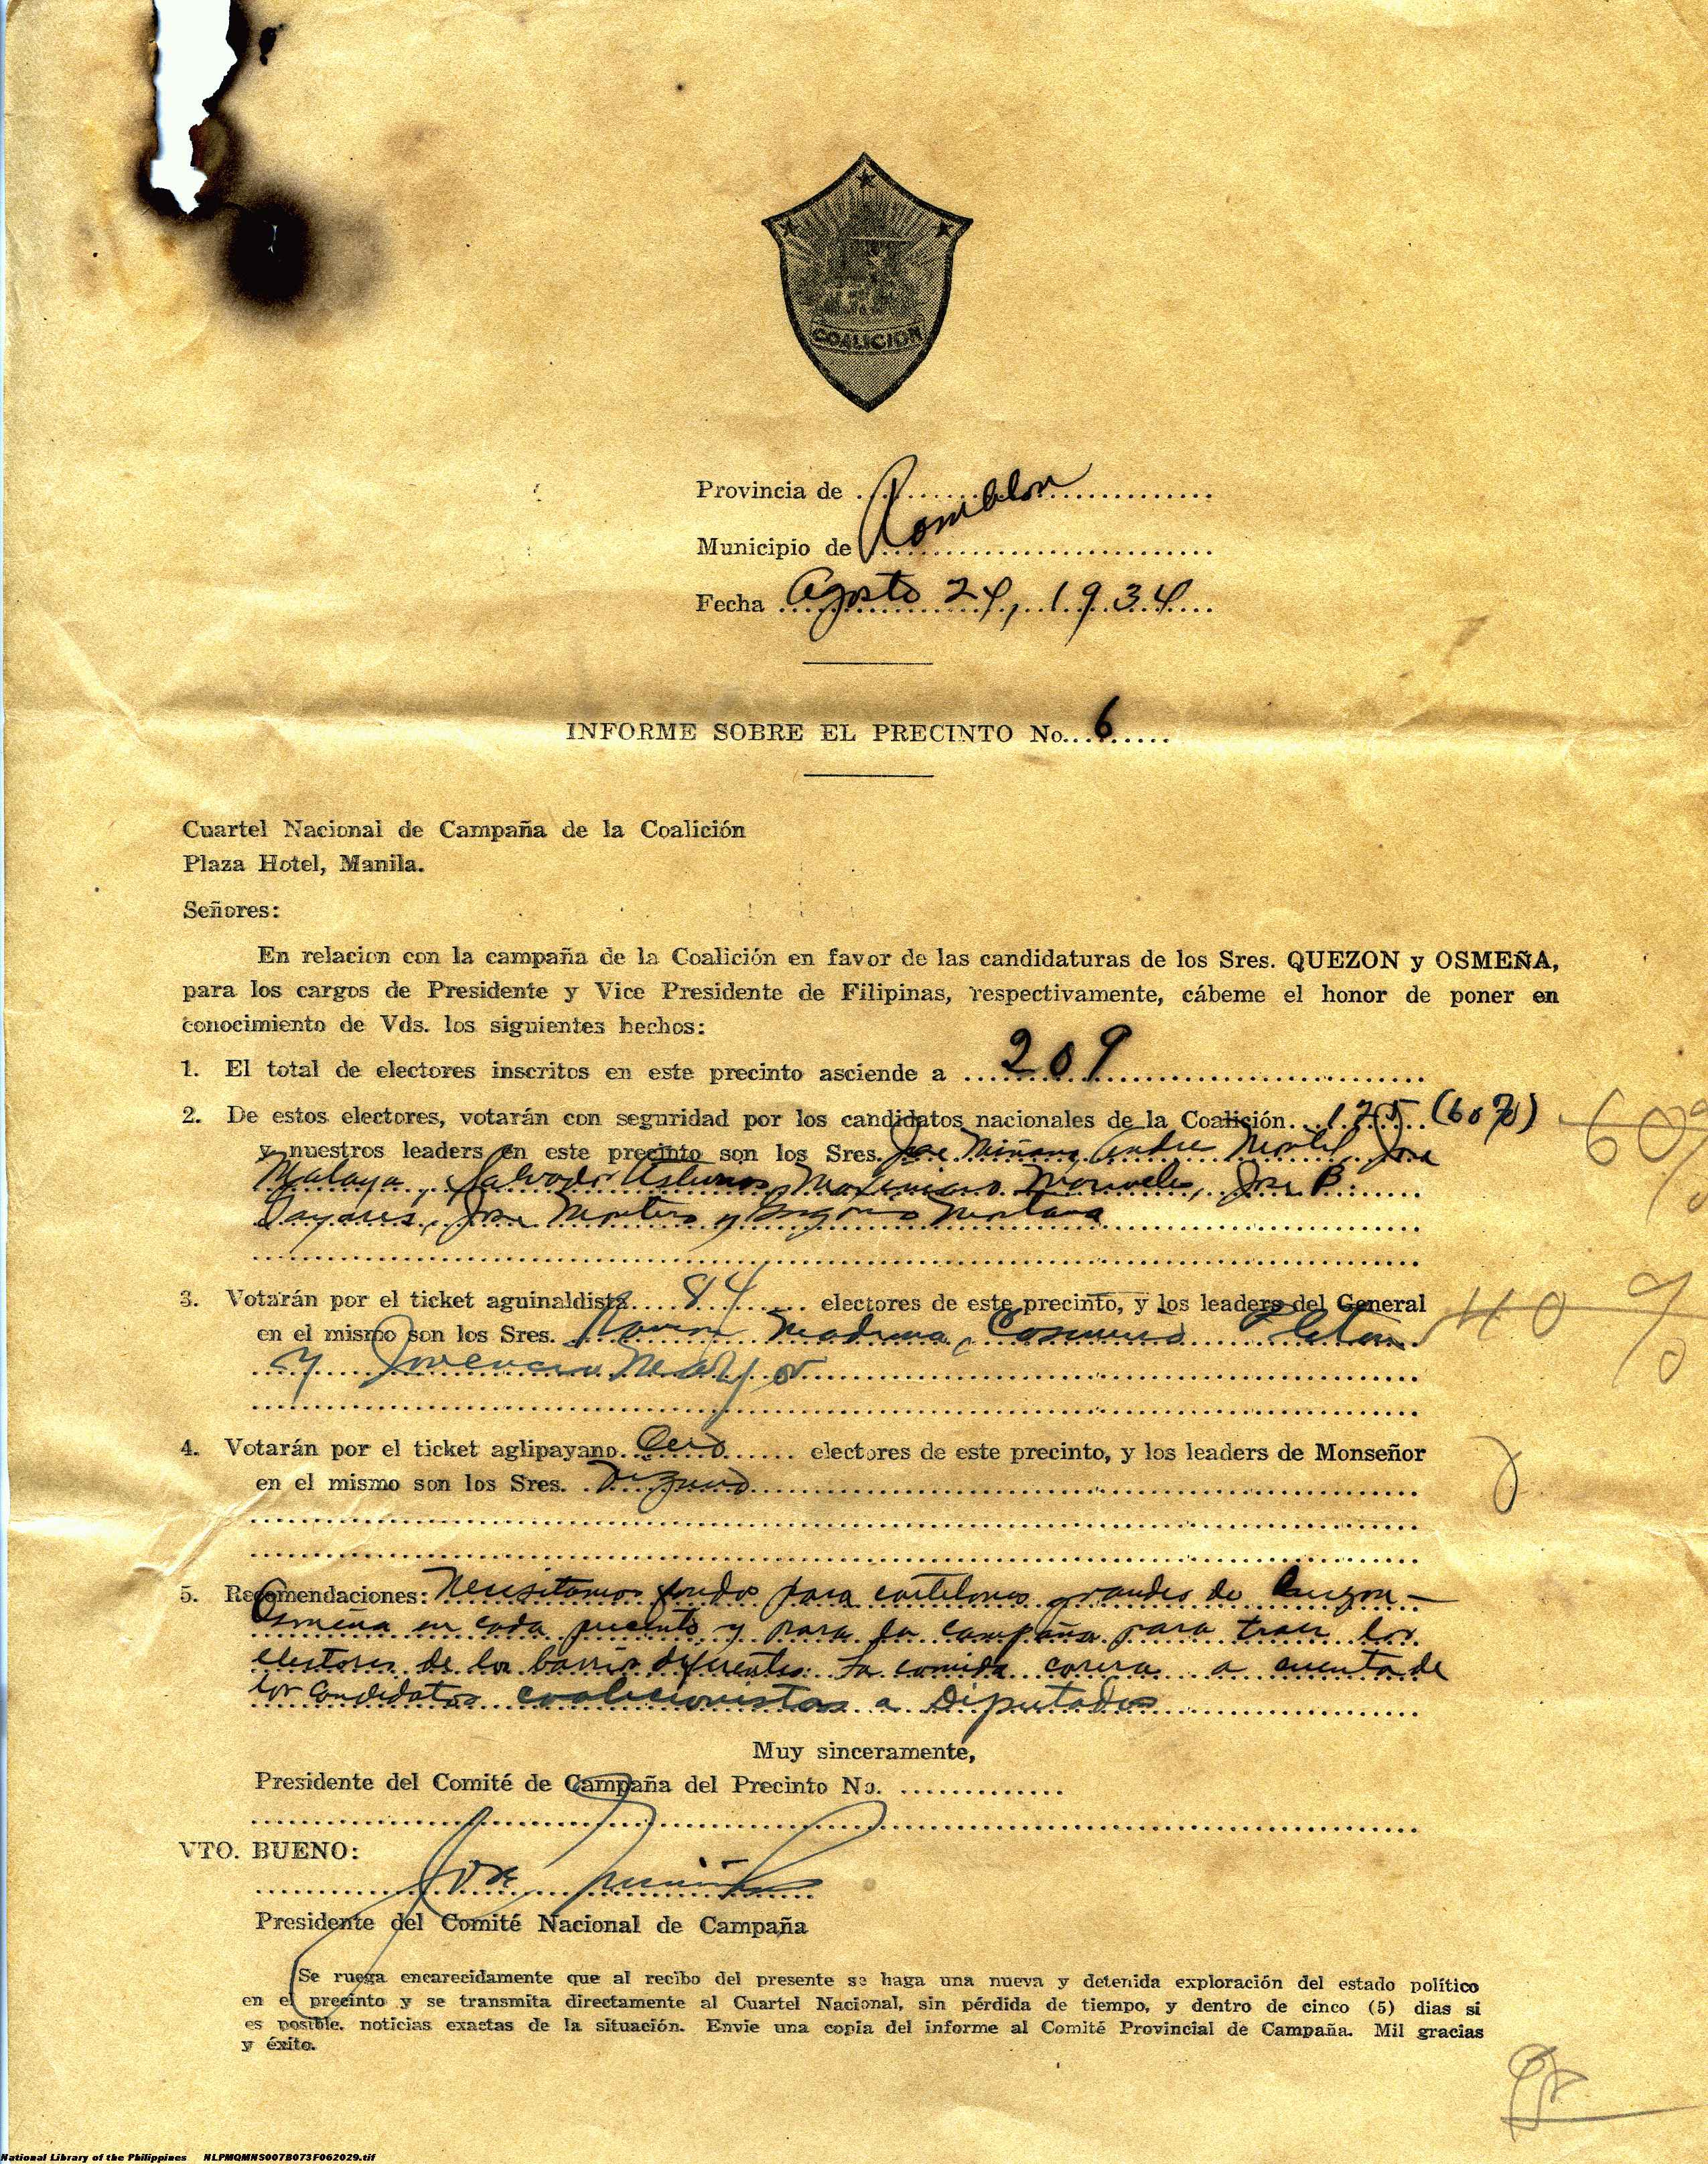 COALICION
Provincia de Romblon
Municipio de
Fecha Agosto 24, 1934
INFORME SOBRE EL PRECINTO No. 6
Cuartel Nacional de Campaña de la Coalición
Plaza Hotel, Manila.
Señores:
En relacion con la campaña de la Coalición en favor de las candidaturas de los Sres. QUEZON y OSMEÑA,
para los cargos de Presidente y Vice Presidente de Filipinas, respectivamente, cábeme el honor de poner en
conocimiento de Vds. los siguientes hechos:
1. El total de electores inscritos en este precinto asciende a 209
2. De estos electores, votarán con seguridad por los candidatos nacionales de la Coalición 125 (60%) 60%
y nuestros leaders en este precinto son los Sres. Jose Miñano, Jose
Malaya, Salvador Jose B.
Jose Montero y Montana
3. Votarán por el ticket aguinaldista 84 electores de este precinto, y los leaders del General 40%
en el mismo son los Sres. Madrona,
y Jovencio
4. Votarán por el ticket aglipayano Cero electores de este precinto, y los leaders de Monseñor 0
en el mismo son los Sres. Ninguno
5. Recomendaciones: Necesitamos fondos para cartelones grandes de Quezon-
Osmeña en cada precinto y para la campaña para traer los
electores de los barrios diferentes. La comida correra a cuenta de
los candidatos coalicionistas a Diputados
Muy sinceramente,
Presidente del Comité de Campaña del Precinto No.
VTO. BUENO:
Jose Miñano
Presidente del Comité Nacional de Campaña
Se ruega encarecidamente que al recibo del presente se haga una nueva y detenida exploración del estado político
en el precinto y se transmita directamente al Cuartel Nacional, sin pérdida de tiempo, y dentro de cinco (5) dias si
es posible, noticias exactas de la situación. Envie una copia del informe al Comité Provincial de Campaña. Mil gracias
y éxito.
National Library of the Philippines NLPMQMNS007B073F062029.tif